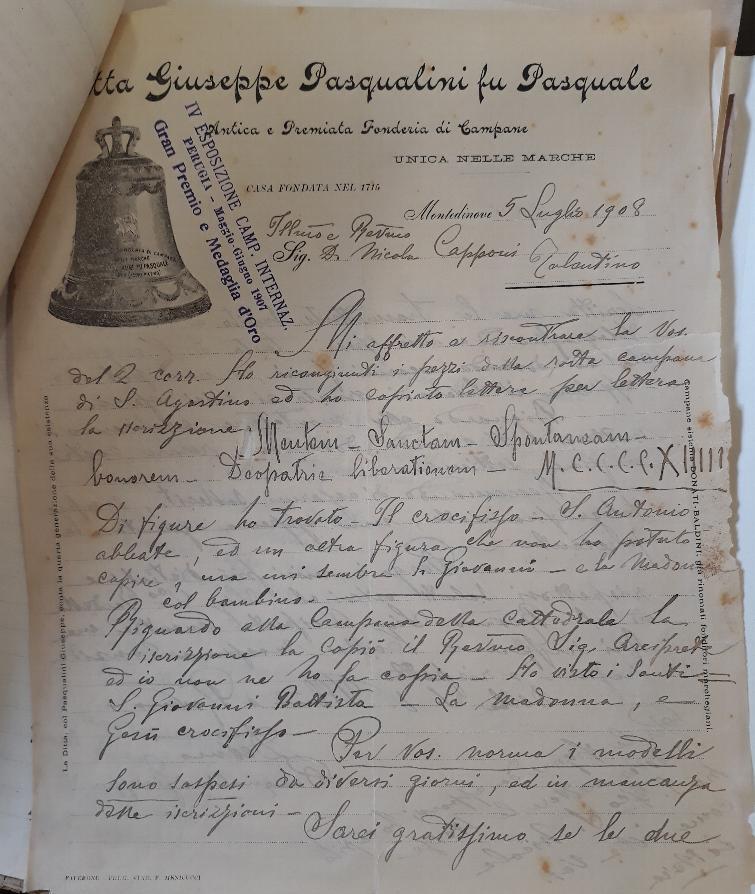 tta Giuseppe Pasqualini fu Pasquale
Antica e Premiata Fonderia di Campane
UNICA NELLE MARCHE
CASA FONDATA NEL 1715
IV ESPOSIZIONE CAMP. INTERNAZ.
PERUGIA - Maggio-Giugno 1907
Gran Premio e Medaglia d'Oro
Montedinove 5 Luglio 1908
Illmo e Revmo
Sig. D. Nicola Capponi
Tolentino
Mi affretto a riscontrare la Vos.
del 2 corr. Ho ricongiunti i pezzi della rotta campana
di S. Agostino ed ho copiato lettera per lettera
la iscrizione: Mentam - Sanctam - Spontaneam -
bonorem - Deopatrie liberationem - M.C.C.C.C.XIIIII
Di figure ho trovato - Il crocifisso - S. Antonio
abbate, ed un altra figura che non ho potuto
capire, ma mi sembra S. Giovanni - e la Madonna
col bambino. -
Riguardo alla Campana della Cattedrale la
iscrizione la copiò il Revmo Sig. Arciprete
ed io non ne ho fa copia - Ho visto i Santi -
S. Giovanni Battista - La Madonna, e -
Gesù crocifisso -
Per Vos. norma i modelli
sono sospesi da diversi giorni, ed in mancanza
delle iscrizioni -
Sarei gratissimo se le due
La Ditta, col Pasqualini Giuseppe, conta la quarta generazione della sua esistenza
Campane sistema DONATI-BALDINI, già rinomati fonditori marchegiani.